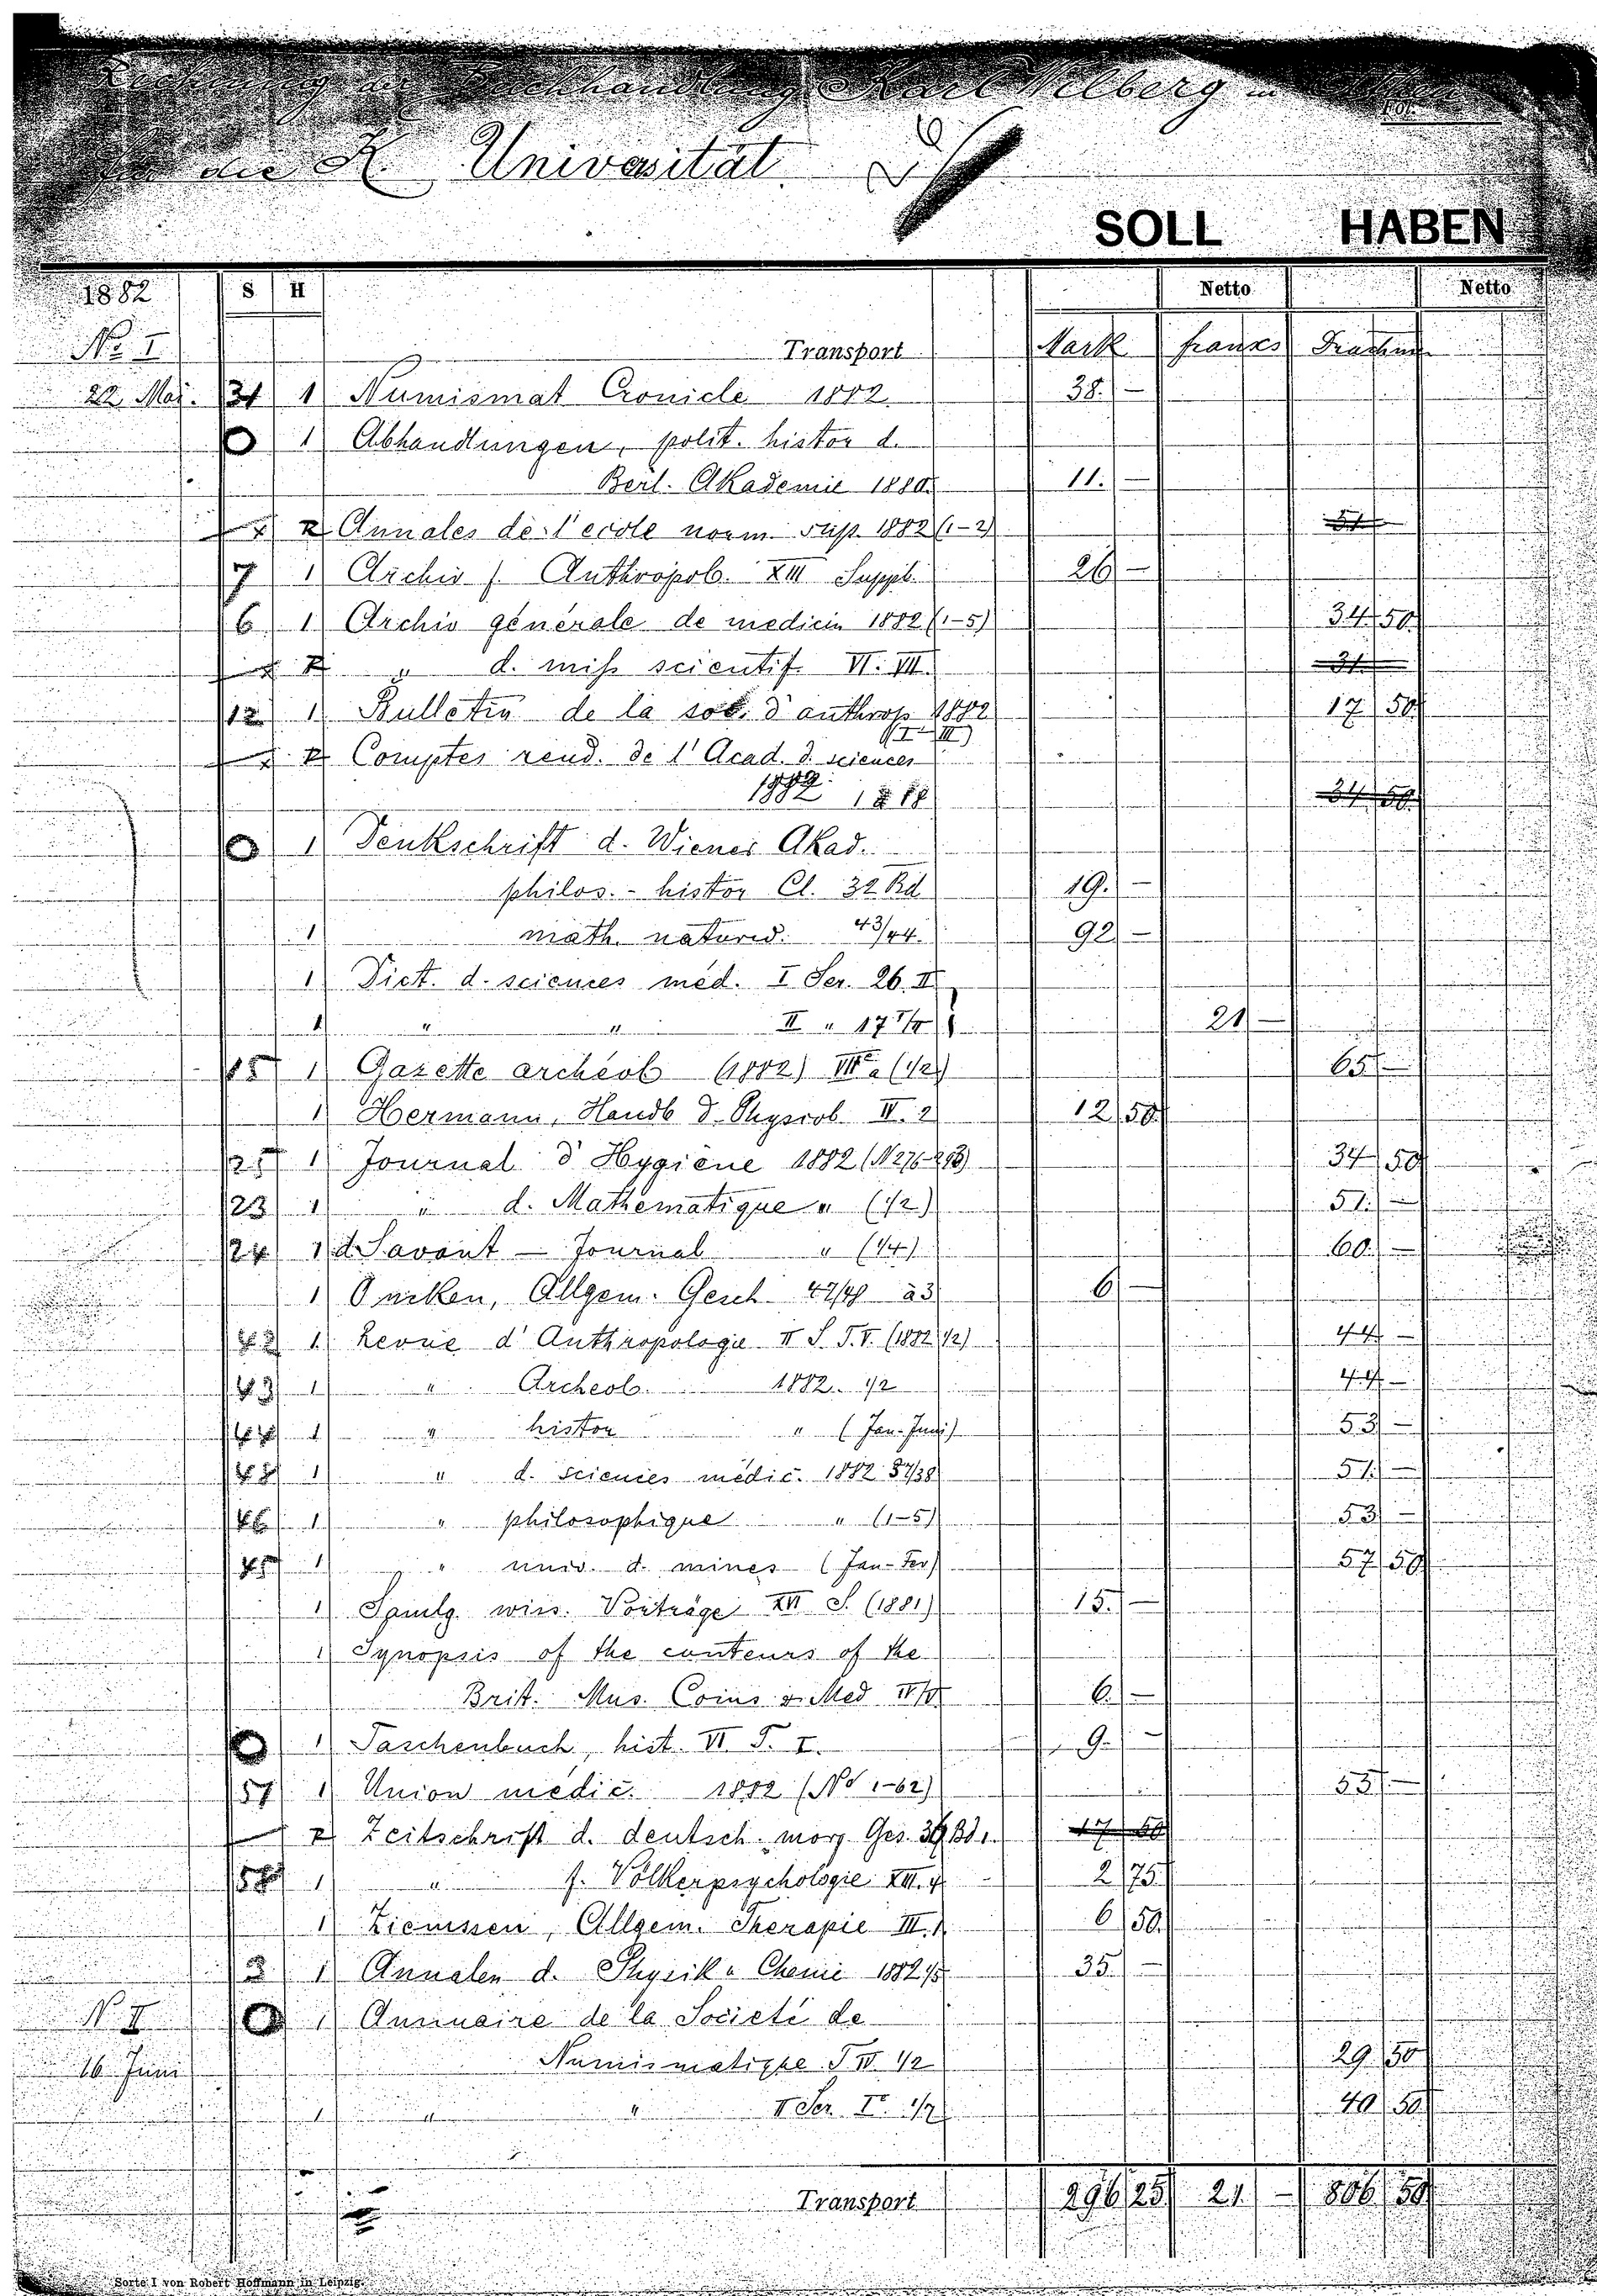 Rechnung der Buchhandlung Karl Wilberg in Athen
Fol.
für die K. Univarsität
SOLL HABEN
1882 S H Netto Netto
No. I Transport Mark franks Drachm
22. Mai. 31 1 Numismat Cronicle 1882 38. —
1 Abhandlungen, polit. histor d.
Berl. Akademie 1880 11. —
Annales de l'ecole norm. sup. 1882 (1-2)
7 1 Archiv f. Anthropol. XIII Suppl. 26 —
6 1 Archiv générale de medicin 1882 (1-5) 34 50
" d. miss scientif. VI. VII.
12 1 Bulletin de la soc. d'anthrop 1882 17 50
(I-III)
Comptes rend. de l'Acad. d. sciences
1882 1 18 34 50
1 Denkschrift d. Wiener Akad.
philos.-histor Cl. 32 Bd 19. —
1 math. naturw. 43/44. 92 —
1 Dict. d. sciences méd. I Ser. 26. II
1 " " II " 17 21 —
15 1 Gazette archéol (1882) VIIe (1/2) 65 —
1 Hermann, Handb d. Physiol. IV. 2 12 50
25 1 Journal d'Hygiène 1882 (N 276-293) 34 50
23 1 " d. Mathematique " (1/2) 51. —
24 1 d. Savant — Journal " (1/4) 60. —
1 Oncken, Allgem. Gesch 47/48 à 3 6 —
42 1 Revue d'Anthropologie II S. T. V. (1882 1/2) 44 —
43 1 " Archeol. 1882. 1/2 44 —
44 1 " histor " (Jan-Juni) 53 —
48 1 " d. sciences médic. 1882 37/38 51 —
46 1 " philosophique " (1-5) 53 —
45 1 " univ. d. mines (Jan-Fev) 57 50
1 Samlg. wiss. Vorträge XVI S. (1881) 15. —
1 Synopsis of the contenrs of the
Brit. Mus. Coins & Med 6. —
1 Taschenbuch, hist. VI F. I. 9. —
57 1 Union médic. 1882 (No 1-62) 53 —
Zeitschrift d. deutsch. morg. Ges. 36 Bd 1.
58 1 " f. Völkerpsychologie XIII. 4 2 75
1 Ziemssen, Allgem. Therapie III. 1 6 50
3 1 Annalen d. Physik u Chemie 1882 1/5 35. —
N. II 1 Annuaire de la Societé de
16 Juni Numismatique T IV 1/2 29 50
1 " " II Ser. I. 1/2 40 50
Transport 296 25 21 — 806 50
Sorte I von Robert Hoffmann in Leipzig.